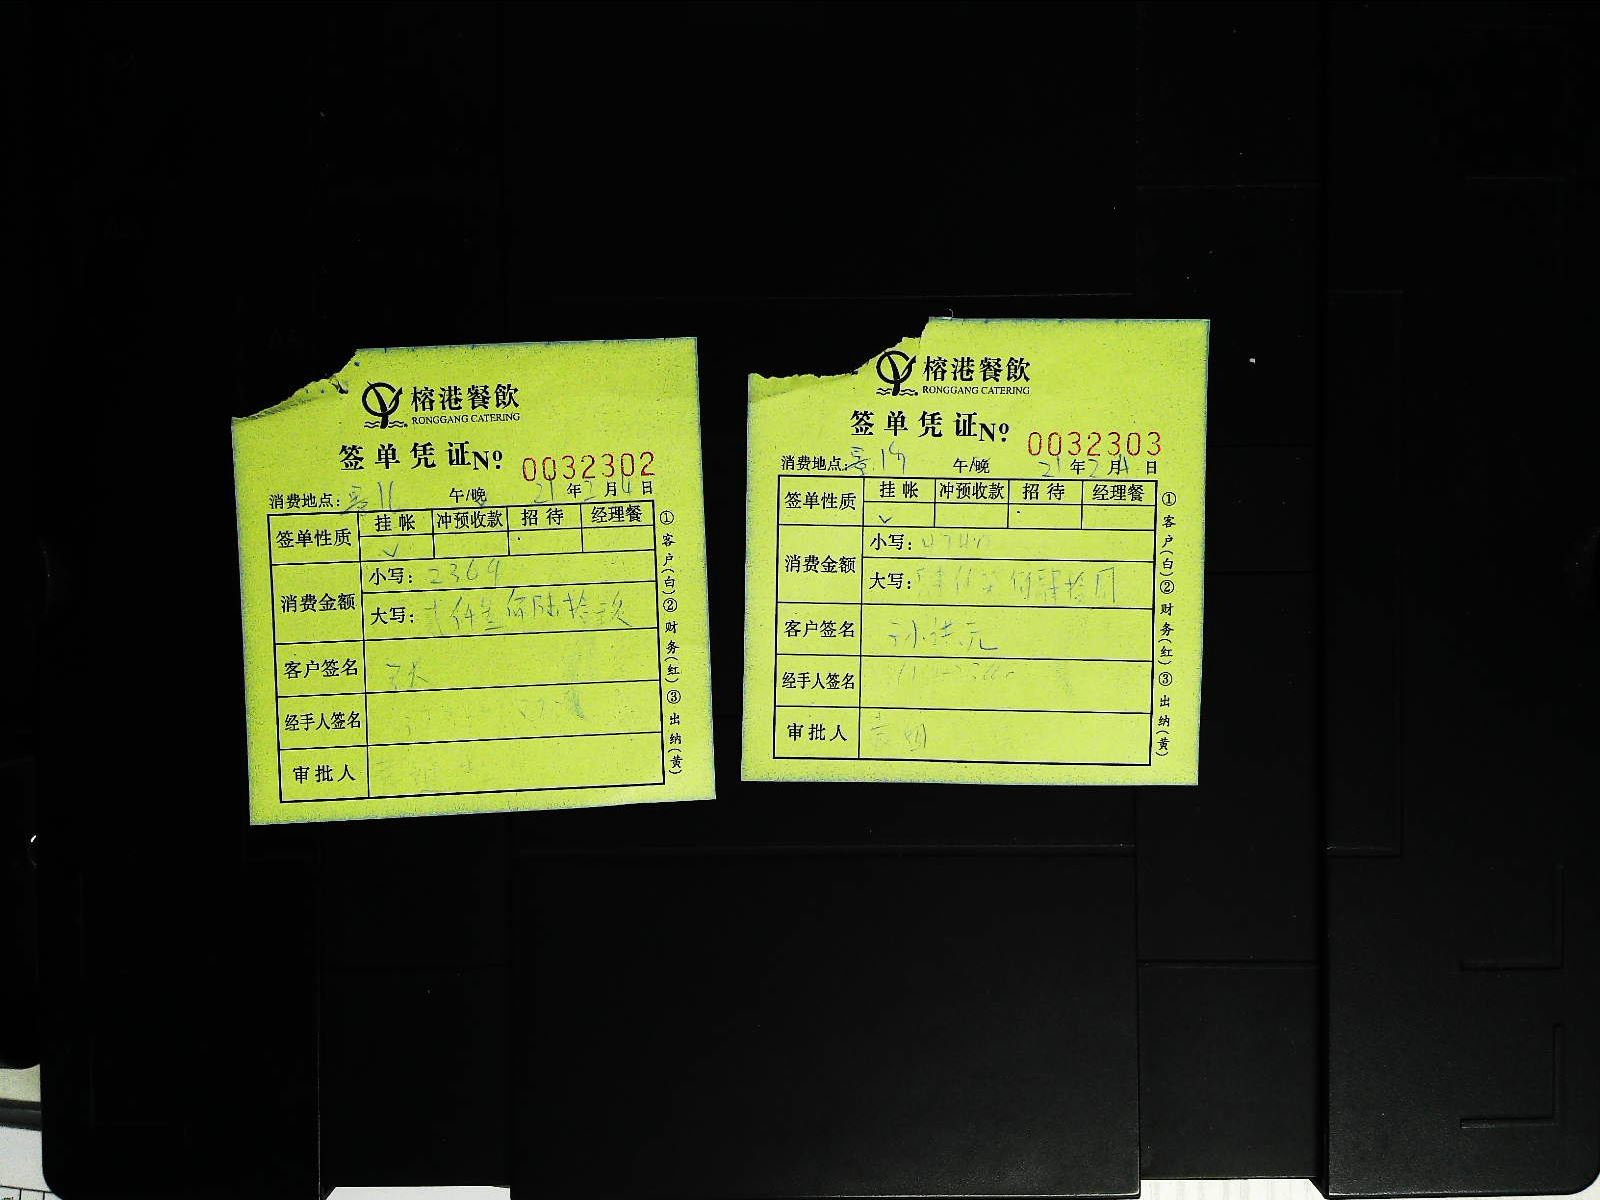 榕港餐飲
RONGGANG CATERING
签单凭证 Nº 0032302
消费地点: 午/晚 21年2月4日
签单性质 挂帐 冲预收款 招待 经理餐
✓
消费金额 小写: 2369
大写: 贰仟叁佰陆拾玖
客户签名
经手人签名
审批人
①客户(白)②财务(红)③出纳(黄)
榕港餐飲
RONGGANG CATERING
签单凭证 Nº 0032303
消费地点: 午/晚 21年2月4日
签单性质 挂帐 冲预收款 招待 经理餐
✓
消费金额 小写: 4740
大写: 肆仟柒佰肆拾圆
客户签名 孙洪元
经手人签名
审批人
①客户(白)②财务(红)③出纳(黄)